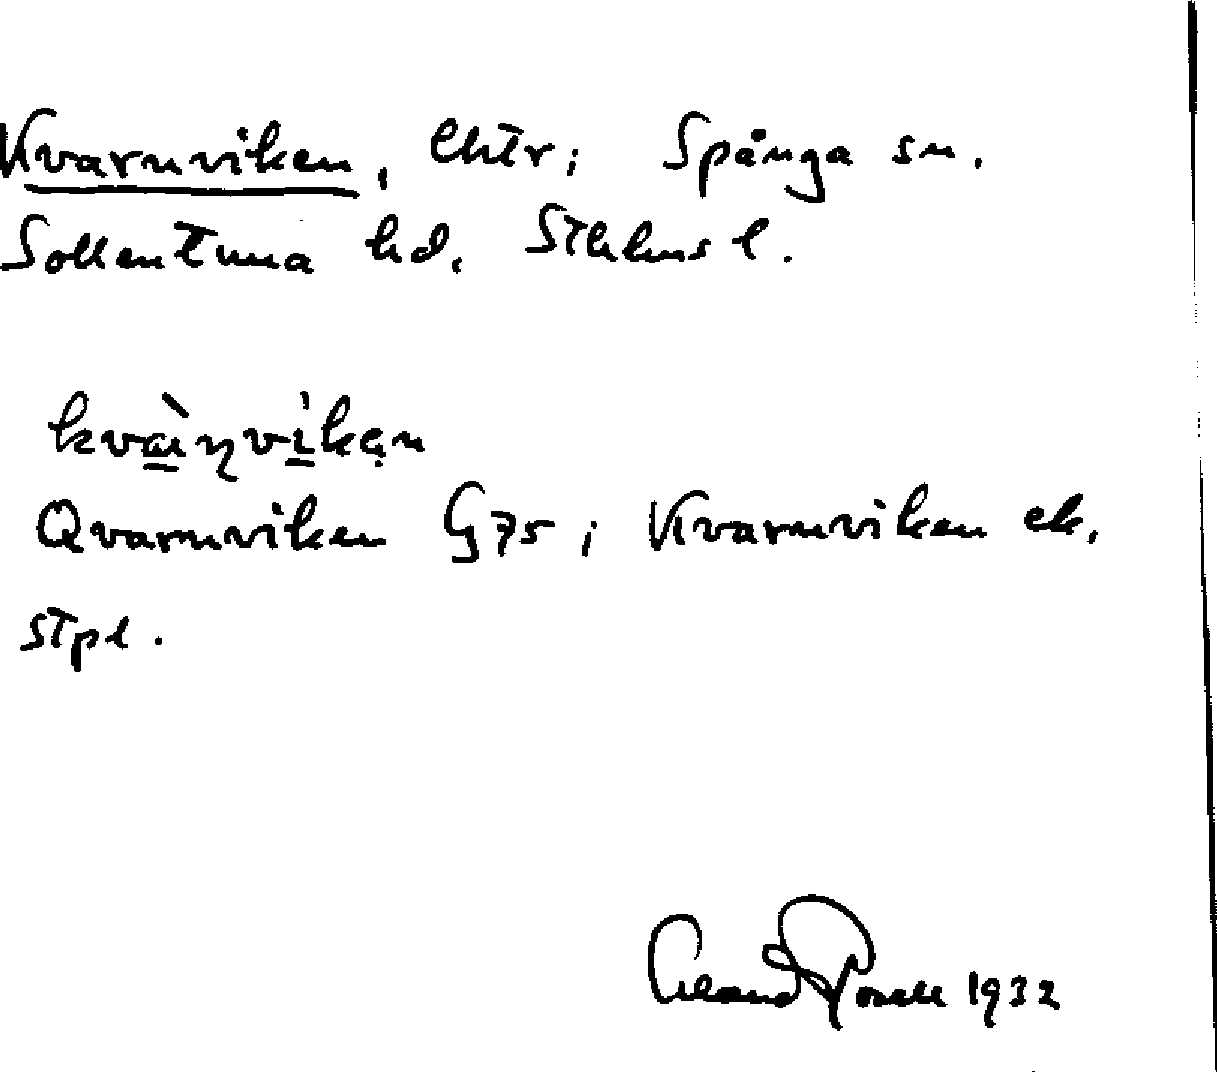 Kvarnviken, lhtr; Spånga sn.
Sollentuna hd. Sthlms l.
kvàṇvìkən
Qvarnviken G75; Kvarnviken ek.
stpl.
1932